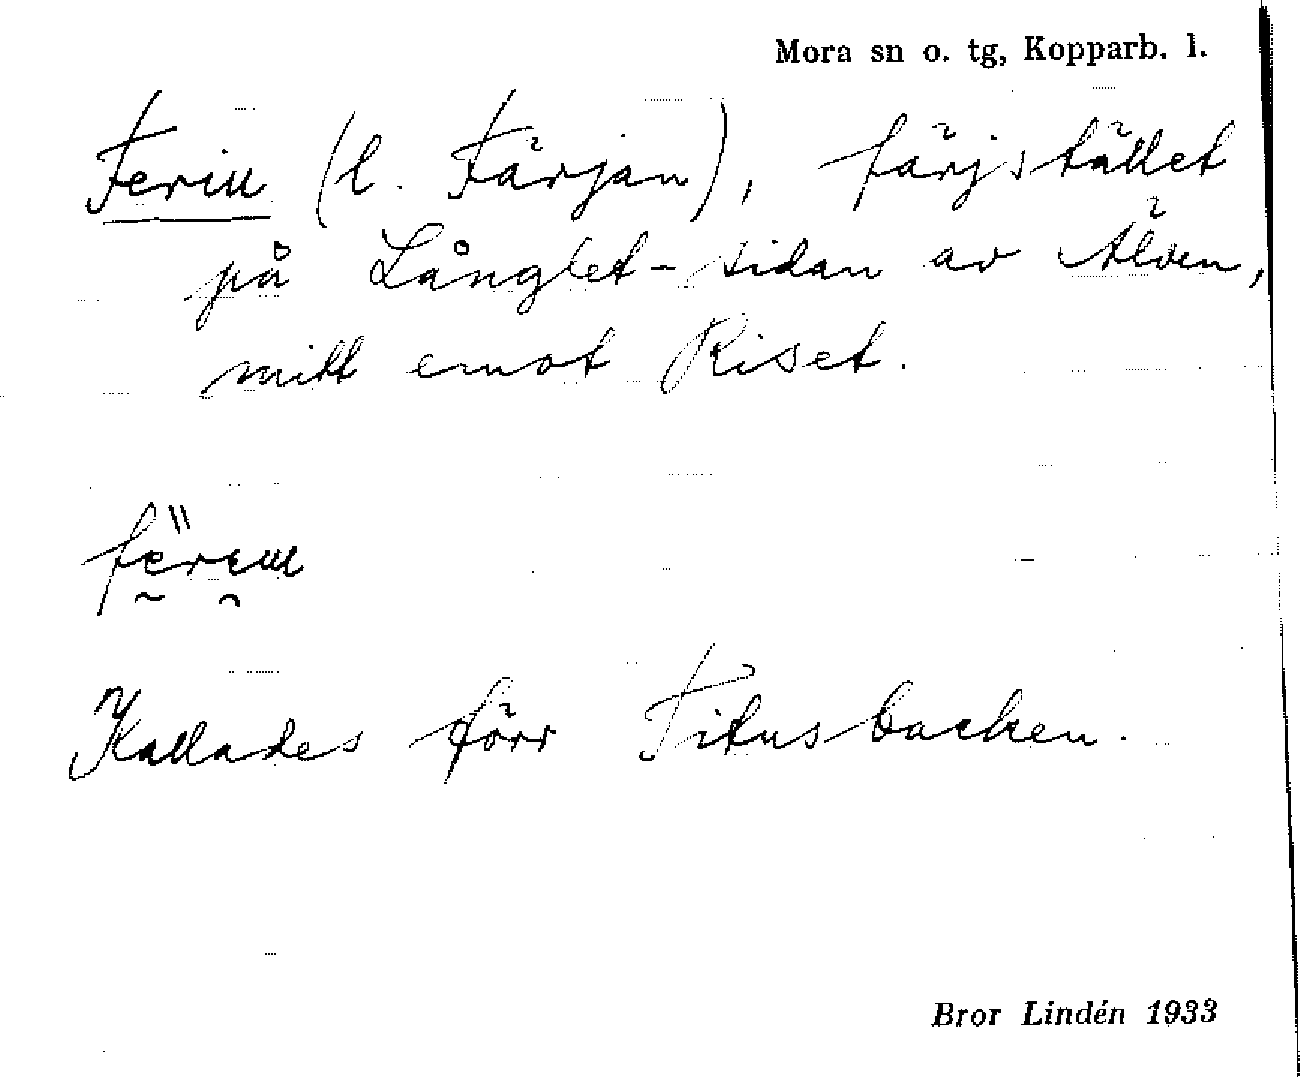 Mora sn o. tg, Kopparb. l.
Ferin (l. Färjan), färjstället
på Långlet-sidan av Älven,
mitt emot Riset.
Kallades förr Titusbacken.
Bror Lindén 1933